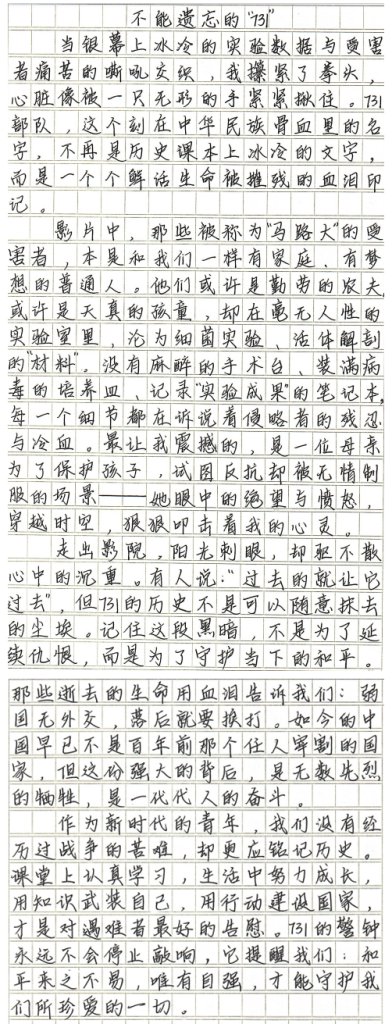 不能遗忘的"731"
当银幕上冰冷的实验数据与受害
者痛苦的嘶吼交织，我攥紧了拳头，
心脏像被一只无形的手紧紧揪住。731
部队，这个刻在中华民族骨血里的名
字，不再是历史课本上冰冷的文字，
而是一个个鲜活生命被摧残的血泪印
记。
影片中，那些被称为"马路大"的受
害者，本是和我们一样有家庭、有梦
想的普通人。他们或许是勤劳的农夫，
或许是天真的孩童，却在毫无人性的
实验室里，沦为细菌实验、活体解剖
的"材料"。没有麻醉的手术台、装满病
毒的培养皿、记录"实验成果"的笔记本，
每一个细节都在诉说着侵略者的残忍
与冷血。最让我震撼的，是一位母亲
为了保护孩子，试图反抗却被无情制
服的场景——她眼中的绝望与愤怒，
穿越时空，狠狠叩击着我的心灵。
走出影院，阳光刺眼，却驱不散
心中的沉重。有人说："过去的就让它
过去"，但731的历史不是可以随意抹去
的尘埃。记住这段黑暗，不是为了延
续仇恨，而是为了守护当下的和平。
那些逝去的生命用血泪告诉我们：弱
国无外交，落后就要挨打。如今的中
国早已不是百年前那个任人宰割的国
家，但这份强大的背后，是无数先烈
的牺牲，是一代代人的奋斗。
作为新时代的青年，我们没有经
历过战争的苦难，却更应铭记历史。
课堂上认真学习，生活中努力成长，
用知识武装自己，用行动建设国家，
才是对遇难者最好的告慰。731的警钟
永远不会停止敲响，它提醒我们：和
平来之不易，唯有自强，才能守护我
们所珍爱的一切。